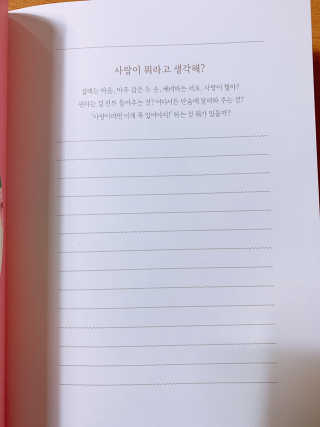 사랑이 뭐라고 생각해?
설레는 마음, 마주 잡은 두 손, 배려하는 태도. 사랑이 뭘까?
원하는 걸 전부 들어주는 것? 어디서든 단숨에 달려와 주는 것?
'사랑이라면 이게 꼭 있어야지!' 하는 건 뭐가 있을까?